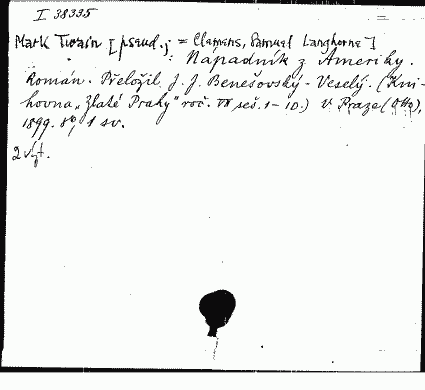 I 38335
Mark Twain [pseud.; = Clemens, Samuel Langhorne]
: Nápadník z Ameriky.
Román. Přeložil J. J. Benešovský-Veselý. (Kni-
hovna „Zlaté Prahy" roč. VII seš. 1-10.) V Praze (Otto),
1899. 8°, 1 sv.
2